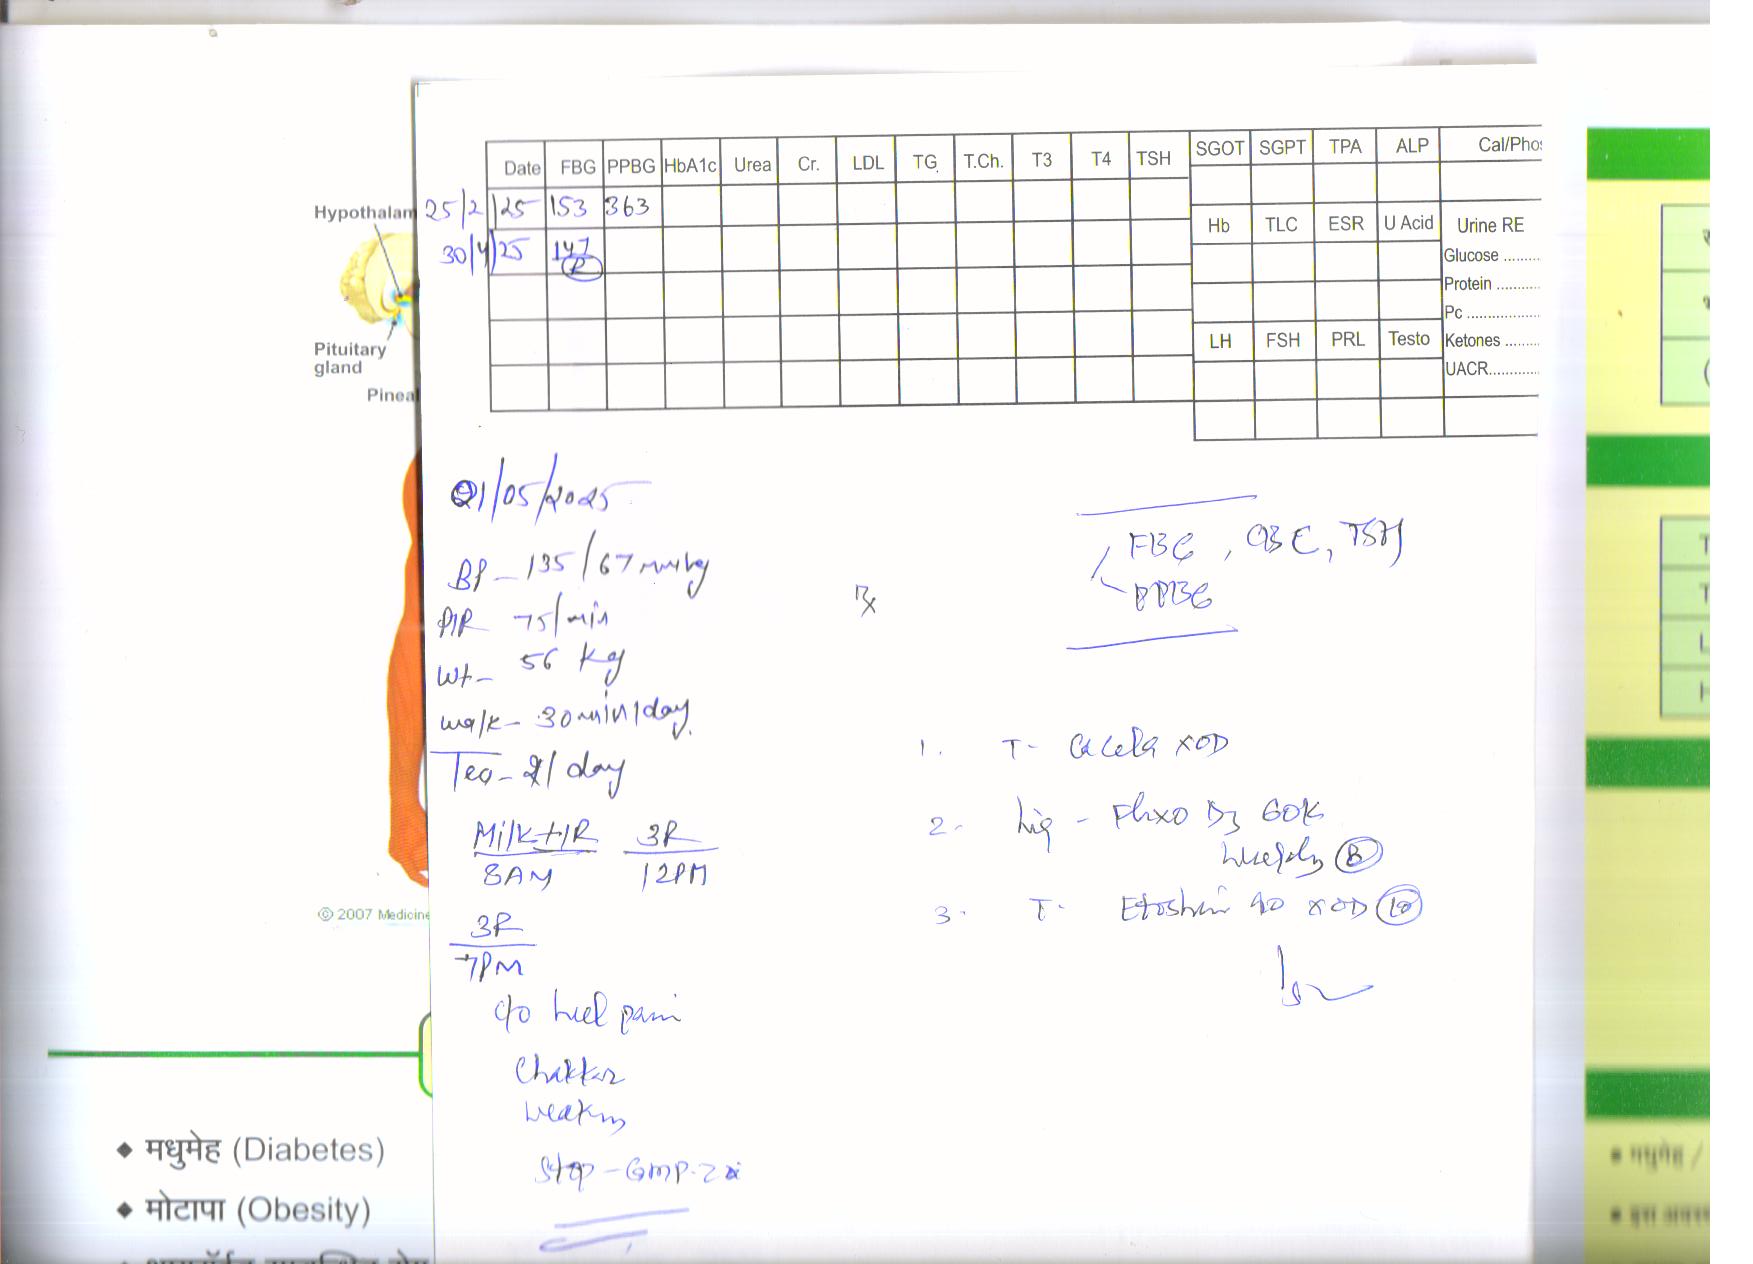 Date FBG PPBG HbA1c Urea Cr. LDL TG T.Ch. T3 T4 TSH SGOT SGPT TPA ALP Cal/Pho
25/2/25 153 363
30/4/25 147 R
Hb TLC ESR U Acid Urine RE
Glucose ........
Protein ..........
Pc .................
LH FSH PRL Testo Ketones ........
UACR............
Hypothalam
Pituitary
gland
Pinea
© 2007 Medicine
21/05/2025
BP - 135/67 mmhg
P/R 75/min
Wt - 56 kg
walk - 30 min/day
Tea - 2/day
Milk + 1R 3R
8AM 12PM
3R
7PM
c/o heel pain
Chakkar
weakns
Stop - GMP-2
Rx
FBG, CBC, TSH
PPBG
1. T- XOD
2. Inj - D3 60K
weekly 8
3. T- Etoshine 90 XOD 10
◆ मधुमेह (Diabetes)
◆ मोटापा (Obesity)
मधुमेह /